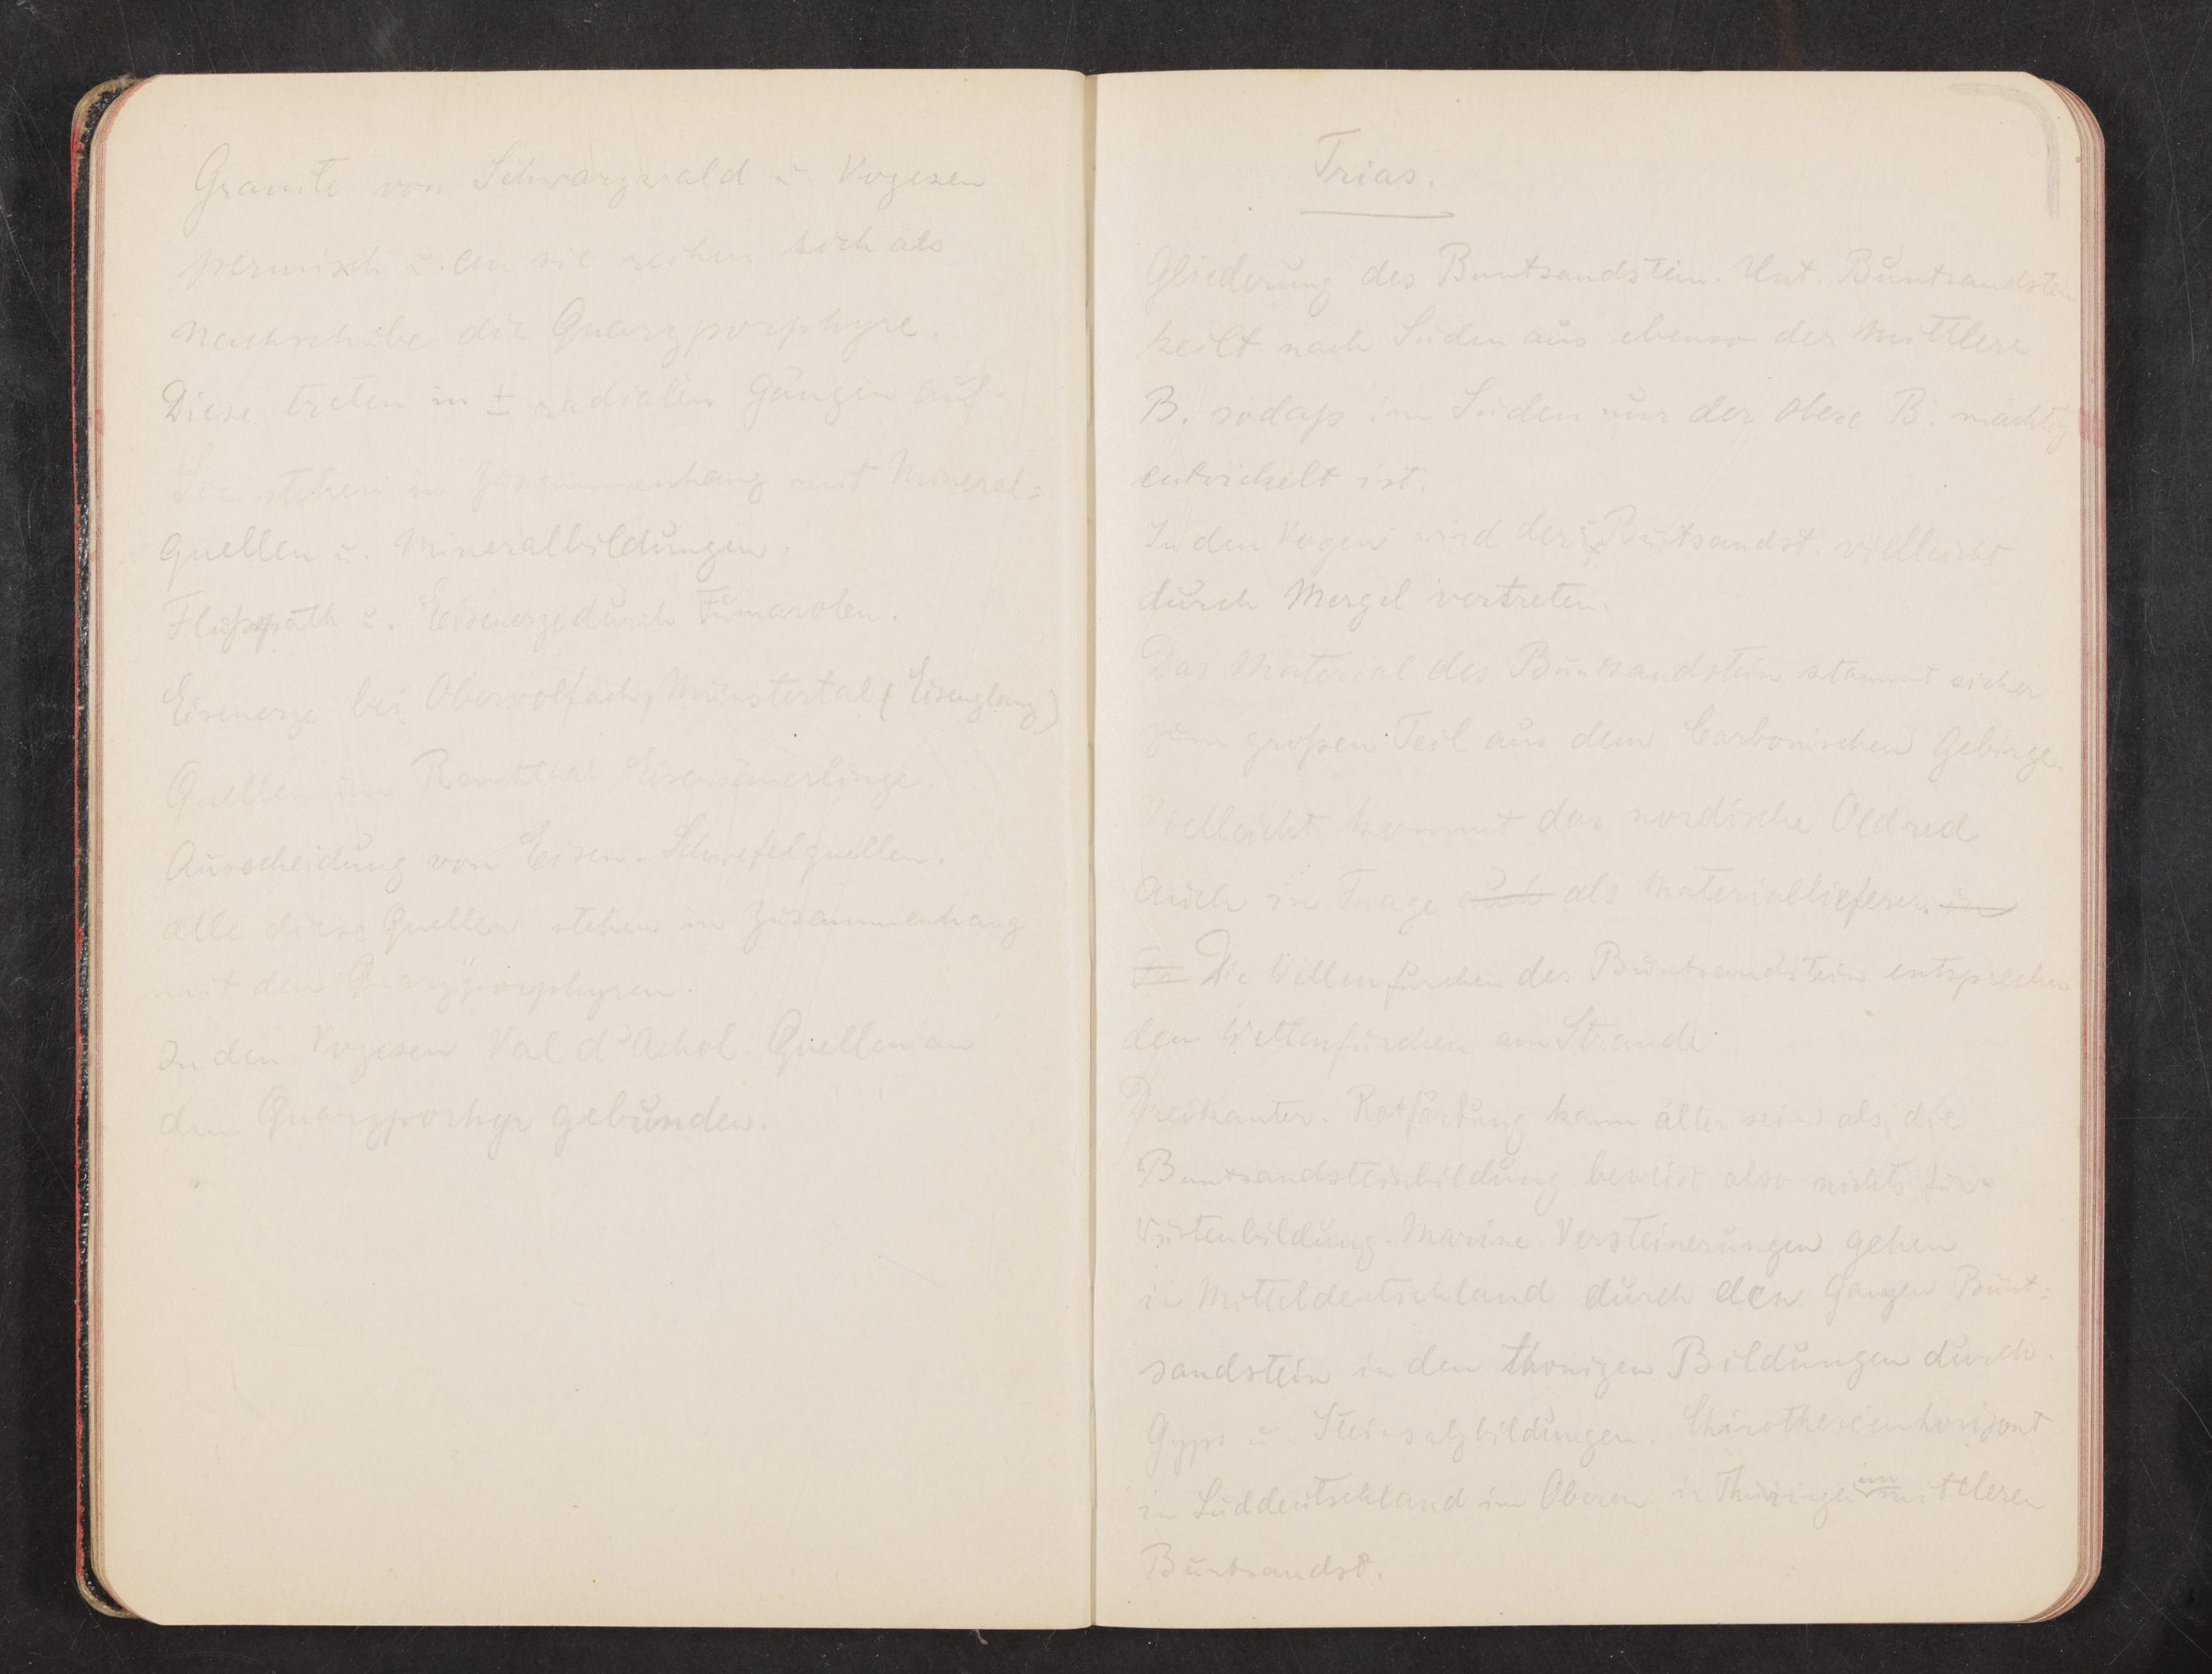 Granite von Schwarzwald u Vogesen
permisch u. an sie reihen sich als
Nachschübe die Quarzporphyre.
Diese treten in ± radialen Gängen auf.
Sie stehen in Zusammenhang mit Mineral=
quellen u. Mineralbildungen.
Flußspath u. Eisenerze durch Fumarolen.
Eisenerze bei Oberwolfach, Münstertal (Eisenglanz)
Quellen im Renchthal Eisensäuerlinge.
Ausscheidung von Eisen. Schwefelquellen.
alle diese Quellen stehen in Zusammenhang
mit den Quarzporphyren.
In den Vogesen Val d'Achol. Quellen an
den Quarzporhyr gebunden.
Trias.
Gliederung des Buntsandstein. Unt. Buntsandstein
keilt nach Süden aus ebenso der Mittlere
B. sodaß im Süden nur der obere B. mächtig
entwickelt ist.
In den Vogen wird der Buntsandst. vielleicht
durch Mergel vertreten.
Das Material des Buntsandstein stammt sicher
zum großen Teil aus dem Carbonischen Gebirge.
Vielleicht kommt das nordische Oldred
auch in Frage auch als Materiallieferer. in
In Die Wellenfurchen des Buntsandsteins entsprechen
den Wellenfurchen am Strande
Dreikanter. Rotfärbung kann älter sein als die
Buntsandsteinbildung beweist also nichts für
Wüstenbildung. Marine Versteinerungen gehen
in Mitteldeutschland durch den ganzen Bunt=
sandstein in den thonigen Bildungen durch.
Gyps u. Steinsalzbildungen. Chirotherienhorizont
in Süddeutschland im Oberen in Thüringen im mittleren
Buntsandst.